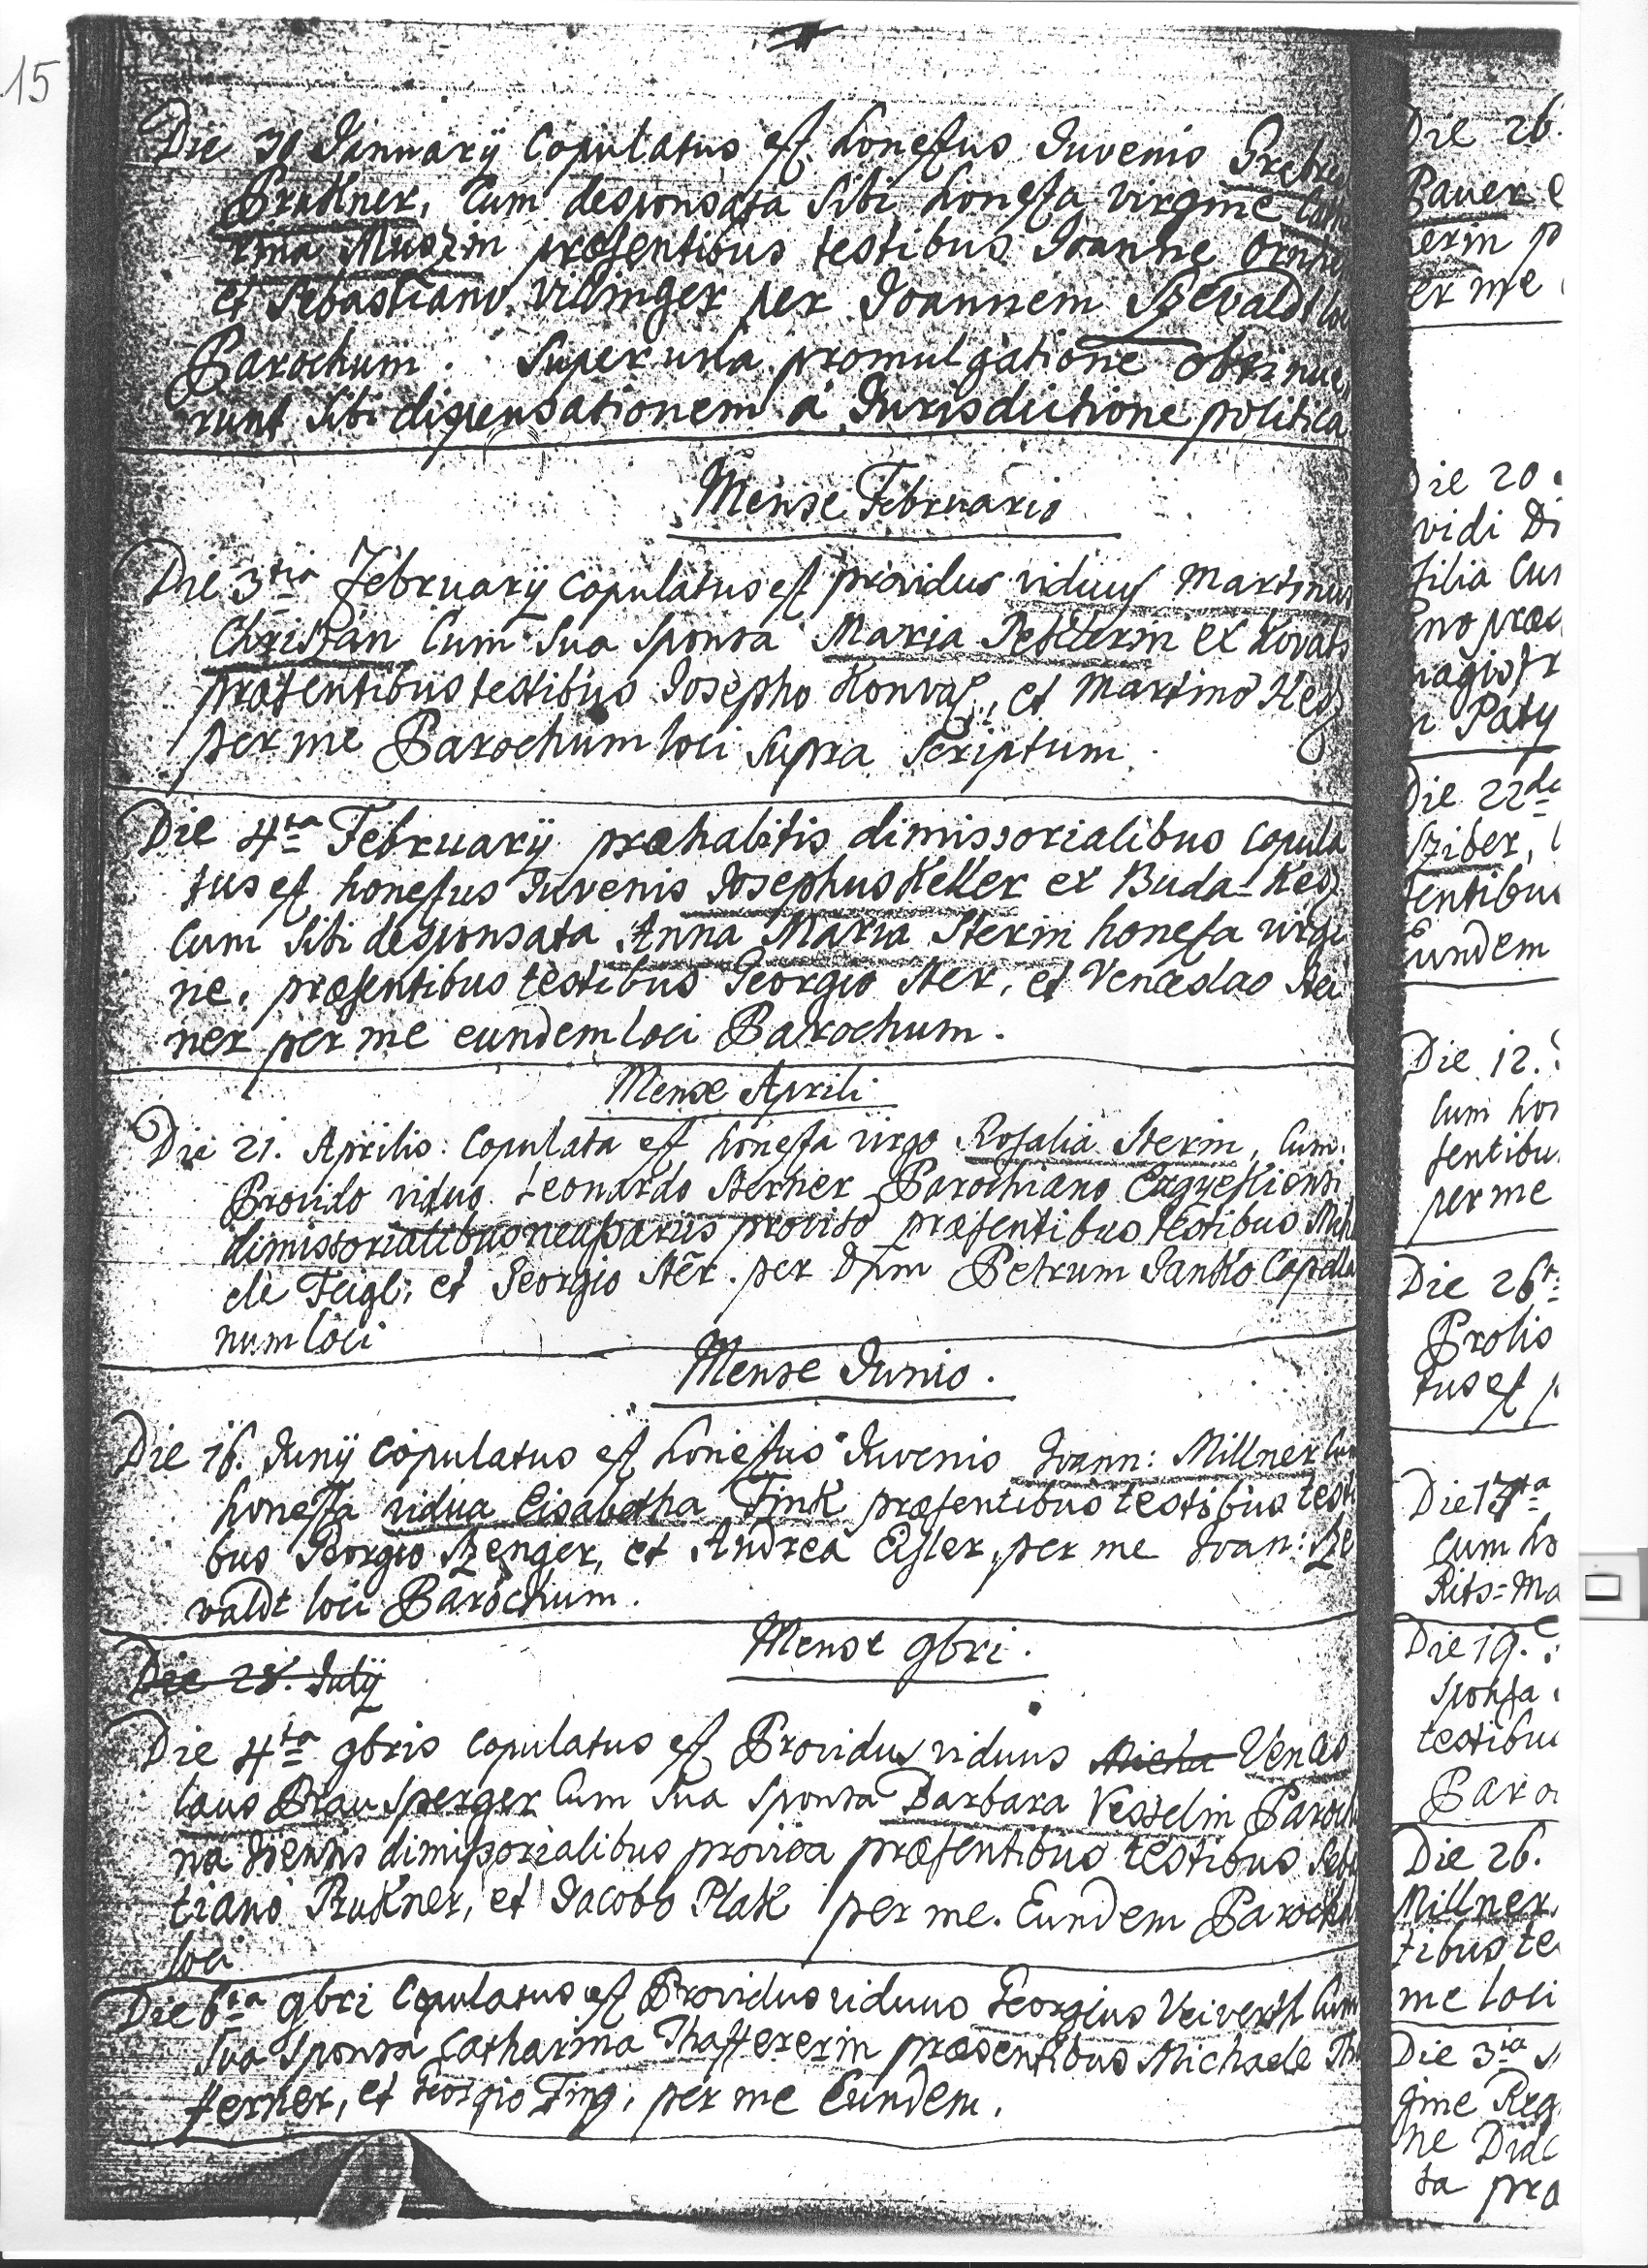 15
Die 30 Januarÿ Copulatus est honestus Juvenis
Prukner, Cum desponsata Sibi honesta virgine Cathe
rina Muszin præsentibus testibus Joanne
et Sebastiano Vilinger per Joannem Szevaldt loci
Parochum. Super una promulgatione obtinue
runt Sibi dispensationem á Jurisdictione politica
Mense Februario
Die 3tia Februarÿ copulatus est providus viduus Martinus
Christán Cum Sua Sponsa Maria ex Kováts
præsentibus testibus Josepho et Martino
per me Parochum loci Supra Scriptum.
Die 4ta Februarÿ præhabitis dimissorialibus Copula
tus est honestus Juvenis Josephus Keller ex Buda-Kesz
Cum Sibi desponsata Anna Maria Sterin honesta virgi
ne, præsentibus testibus Georgio Ster, et Venceslao Stei
ner per me eundem loci Parochum.
Mense Aprili
Die 21. Aprilis Copulata est honesta virgo Rosalia Sterin, Cum
Provido viduo Leonardo Sterner Parochiano
dimissorialibus proviso præsentibus testibus Micha
ele Feigl: et Georgio Stér. per Dnm Petrum Janko Capella
num loci
Mense Junio.
Die 16. Junÿ copulatus est honestus Juvenis Joann: Millner Cum
honesta vidua Elisabetha Fink præsentibus testibus testi
bus Georgio Szenger, et Andrea Eisler, per me Joan: Sze
valdt loci Parochum.
Mense 9bri.
Die 28. Julÿ
Die 4ta 9bris copulatus est Providus viduus Micha Vences
laus Brausperger Cum Sua Sponsa Barbara Vesselin Parochia
na dimissorialibus provisa præsentibus testibus Sebas
tiano Prukner, et Jacobo Plak per me Eundem Parochum
loci
Die 6ta 9bri Copulatus est Providus viduus Georgius Veiverth Cum
Sua Sponsa Catharina Thaffererin præsentibus Michaele
ferner, et Georgio Fing, per me Eundem.
Die 26.
Pauer
erin p
er me
Die 20
vidi Di
filia Cu
no præ
magistr
n Paty
Die 22de
Sziber,
sentibu
Eundem
Die 12.
Cum hon
sentibu
per me
Die 26t
Prolis
tus est p
Die 17ta
Cum ho
Rits=Ma
Die 19.
Sponsa
testibu
Paro
Die 26.
Millner
tibus te
me loci
Die 3tia
gine Reg
ne
ta pra